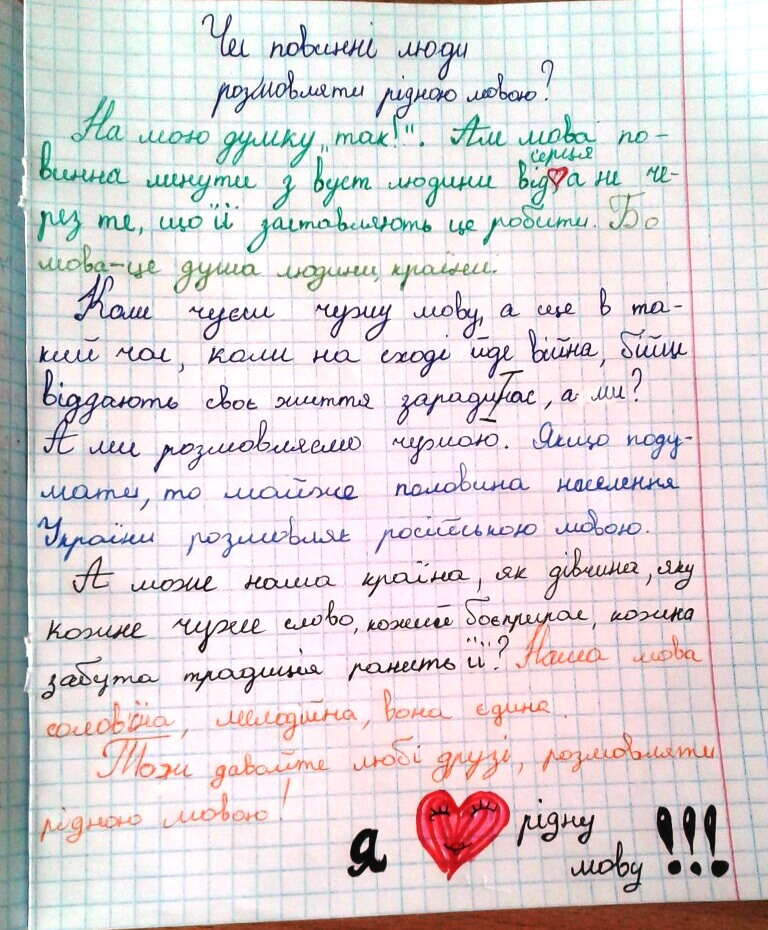 Чи повинні люди
розмовляти рідною мовою?
На мою думку „так!". Али мова по-
винна линути з вуст людини від серця, а не че-
рез те, що її заставляють це робити. Бо
мова – це душа людини, країни.
Коли чуєш чужу мову, а ще в та-
кий час, коли на сході йде війна, бійці
віддають своє життя заради нас, а ми?
А ми розмовляємо чужою. Якщо поду-
мати, то майже половина населення
України розмовляє російською мовою.
А може наша країна, як дівчина, яку
кожне чуже слово, кожний боєприпас, кожна
забута традиція ранить її? Наша мова
солов'їна, мелодійна, вона єдина.
Тож давайте любі друзі, розмовляти
рідною мовою!
я рідну
мову !!!